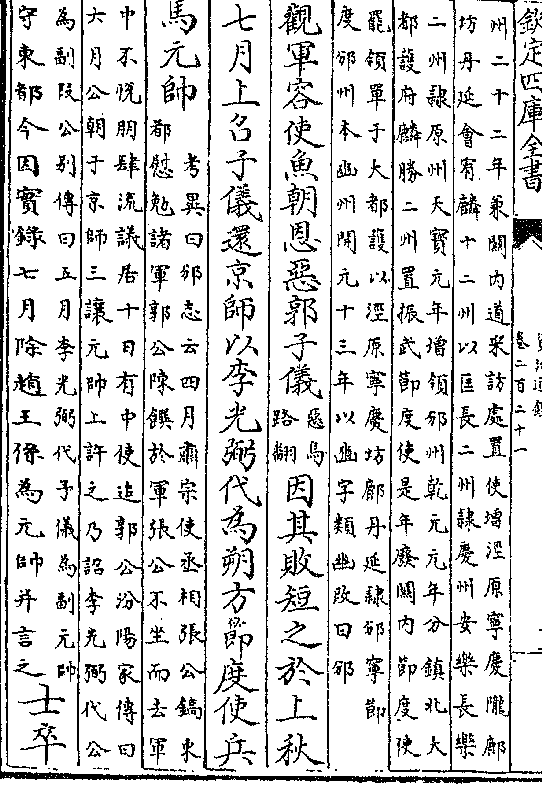 欽定四庫全書
資治通鑑
卷二百二十一
州二十二年兼關内道采訪處置使增涇原寧慶隴鄜
坊丹延會宥麟十二州以匡長二州隸慶州安樂長樂
二州隸原州天寶元年增領邠州乾元元年分鎮北大
都護府麟勝二州置振武節度使是年廢關内節度使
罷領單于大都護以涇原寧慶坊鄜丹延隸邠寧節
度邠州本豳州開元十三年以豳字類幽改曰邠
觀軍容使魚朝恩惡郭子儀惡烏路翻因其敗短之於上秋
七月上召子儀還京師以李光弼代為朔方節度使兵
馬元帥考異曰邠志云四月肅宗使丞相張公鎬東
都慰勉諸軍郭公陳饌於軍張公不坐而去軍
中不悦朋肆流議居十日有中使追郭公汾陽家傳曰
六月公朝于京師三讓元帥上許之乃詔李光弼代公
為副段公别傳曰五月李光弼代子儀為副元帥
守東都今因實錄七月除趙王係為元帥并言之士卒